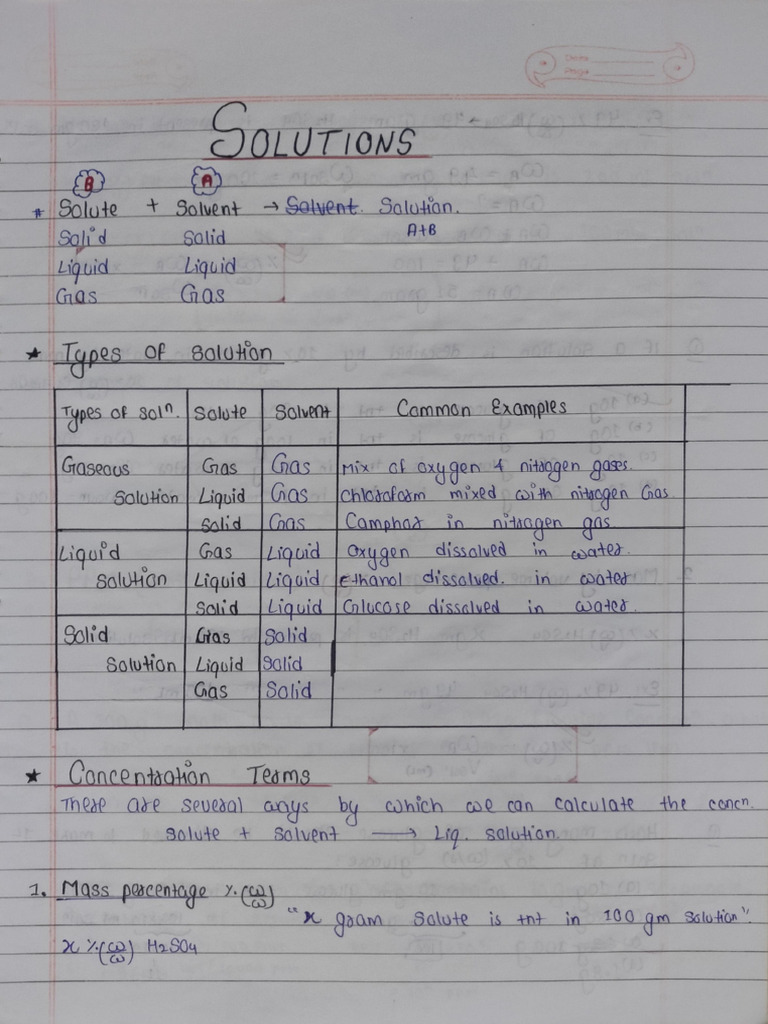 SOLUTIONS
B A
* Solute + Solvent → Solvent. Solution.
Solid Solid A+B
Liquid Liquid
Gas Gas
★ Types of solution
Types of Soln. Solute Solvent Common Examples
Gaseous Gas Gas Mix of oxygen & nitrogen gases.
Solution Liquid Gas Chloroform mixed with nitrogen Gas
Solid Gas Camphor in nitrogen gas
Liquid Gas Liquid Oxygen dissolved in water.
Solution Liquid Liquid Ethanol dissolved. in water
Solid Liquid Glucose dissolved in water.
Solid Gas Solid
Solution Liquid Solid
Gas Solid
★ Concentration Terms
There are several ways by which we can calculate the concn.
Solute + Solvent → Liq. Solution.
1. Mass percentage %(w/w)
"x gram Solute is tnt in 100 gm Solution".
x %(w/w) H2SO4